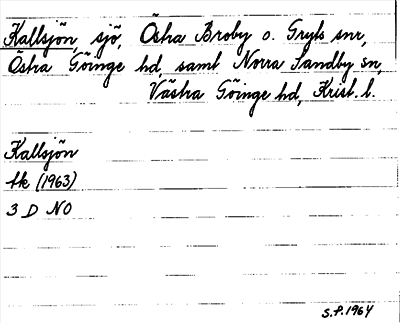 Kallsjön, sjö, Östra Broby o. Gryts snr,
Östra Göinge hd, samt Norra Sandby sn,
Västra Göinge hd, Krist. l.
Kallsjön
tk (1963)
3 D NO
S.P. 1964